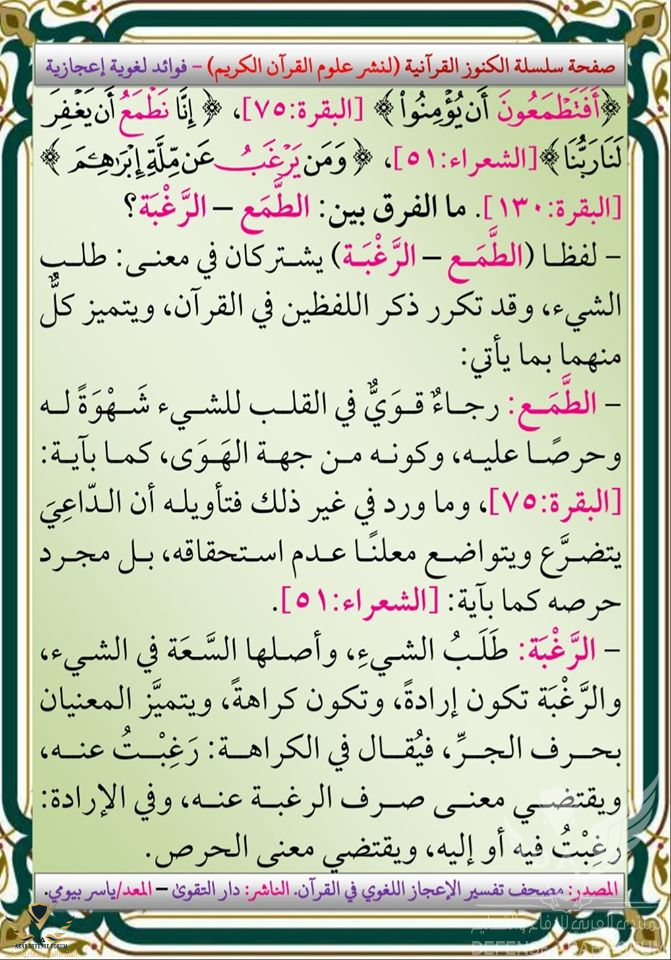 صفحة سلسلة الكنوز القرآنية (لنشر علوم القرآن الكريم) – فوائد لغوية إعجازية
﴿أَفَتَطْمَعُونَ أَن يُؤْمِنُوا۟﴾ [البقرة:٧٥]، ﴿إِنَّا نَطْمَعُ أَن يَغْفِرَ
لَنَا رَبُّنَا﴾ [الشعراء:٥١]، ﴿وَمَن يَرْغَبُ عَن مِّلَّةِ إِبْرَٰهِـۧمَ﴾
[البقرة:١٣٠]. ما الفرق بين: الطَّمَع – الرَّغْبَة؟
– لفظا (الطَّمَع – الرَّغْبَة) يشتركان في معنى: طلب
الشيء، وقد تكرر ذكر اللفظين في القرآن، ويتميز كلٌّ
منهما بما يأتي:
– الطَّمَع: رجاءٌ قويٌّ في القلب للشيء شَهْوَةً له
وحرصًا عليه، وكونه من جهة الهَوَى، كما بآية:
[البقرة:٧٥]، وما ورد في غير ذلك فتأويله أن الدّاعِيَ
يتضرَّع ويتواضع معلنًا عدم استحقاقه، بل مجرد
حرصه كما بآية: [الشعراء:٥١].
– الرَّغْبَة: طَلَبُ الشيءِ، وأصلها السَّعَة في الشيء،
والرَّغْبَة تكون إرادةً، وتكون كراهةً، ويتميَّز المعنيان
بحرف الجرِّ، فيُقال في الكراهة: رَغِبْتُ عنه،
ويقتضي معنى صرف الرغبة عنه، وفي الإرادة:
رغِبْتُ فيه أو إليه، ويقتضي معنى الحرص.
المصدر: مصحف تفسير الإعجاز اللغوي في القرآن. الناشر: دار التقوىٰ – المعد/ياسر بيومي.
ARAB DEFENSE FORUM